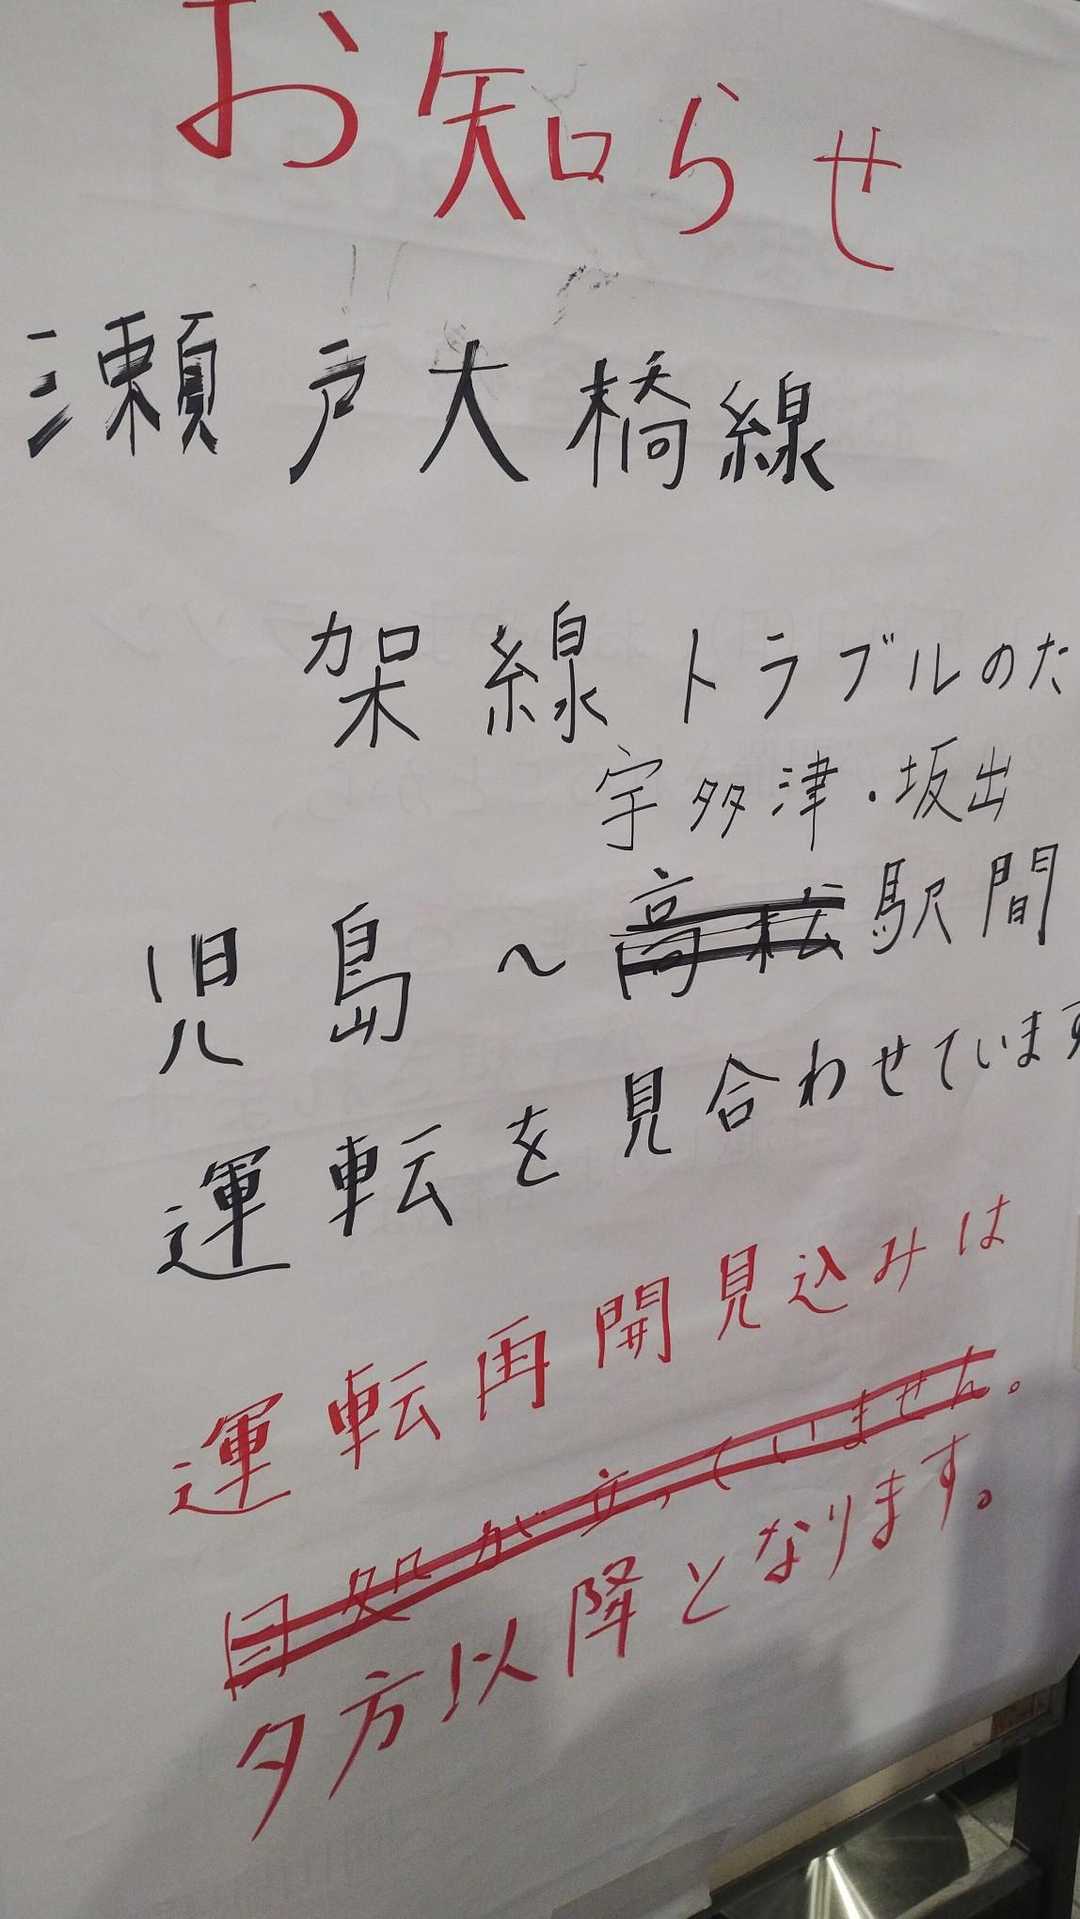 お知らせ
瀬戸大橋線
架線トラブルのた
宇多津・坂出
児島～高松駅間
運転を見合わせています
運転再開見込みは
目処が立っていません。
夕方以降となります。